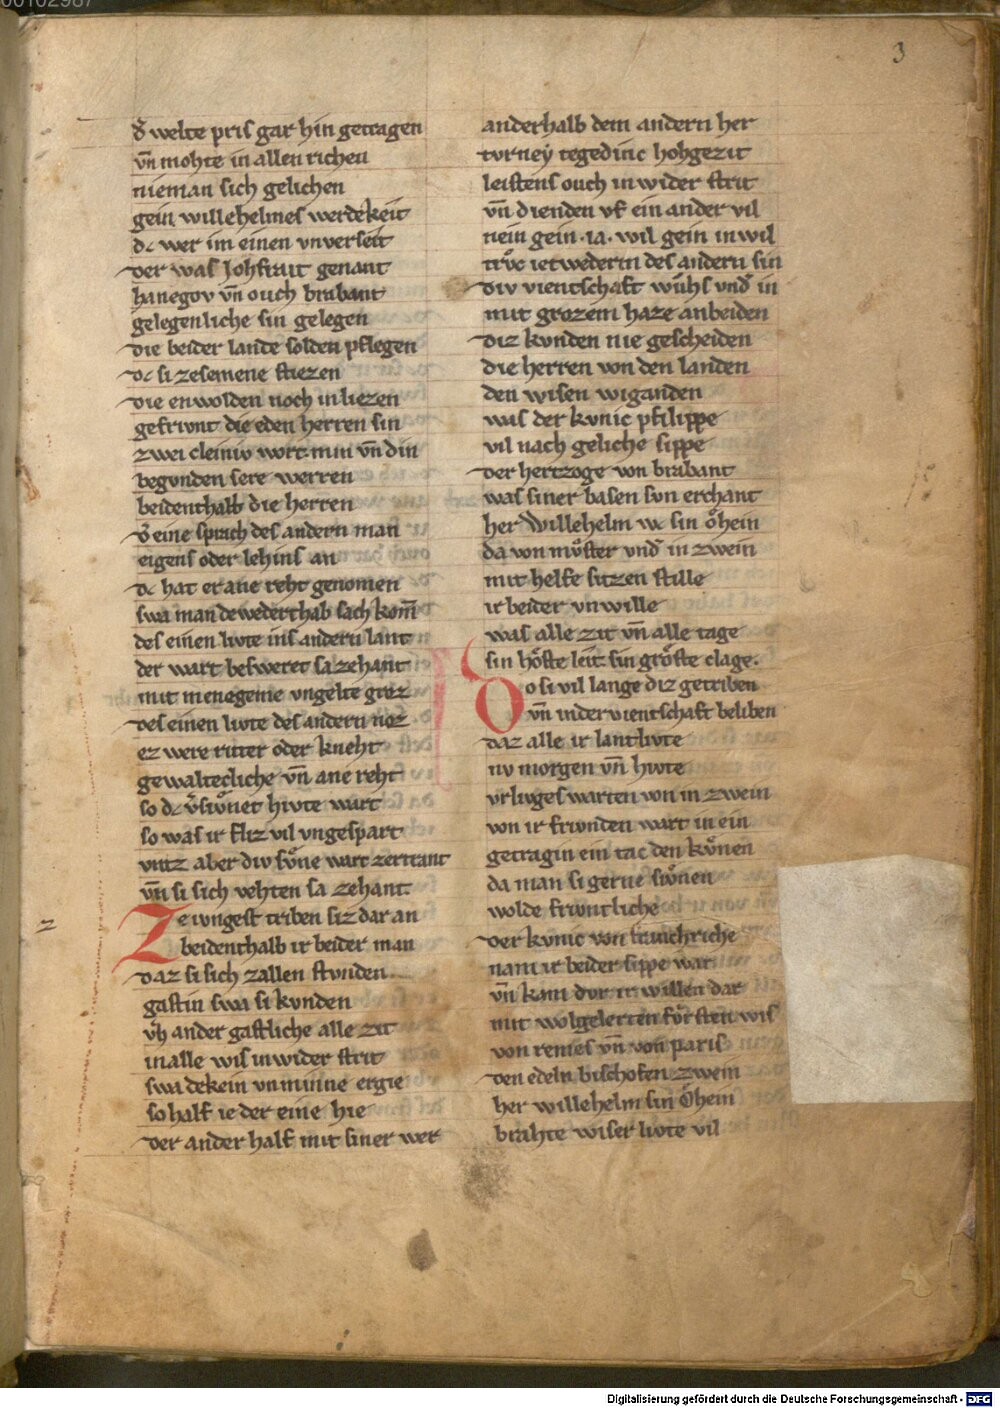 00102987
3
d̾ welte pris gar hin getragen
vn̄ mohte in allen richen
nieman sich gelichen
gein willehelmes werdekeit
dc wer im einen vnverseit
Der was Johfrait genant
hanegov vn̄ ouch brabant
gelegenliche sin gelegen
Die beider lande solden pflegen
Dc si zesemene stiezen
Die enwolden noch inliezen
gefrivnt die eden herren sin
zwei cleiniv wort min vn̄ din
begvnden sere werren
beidenthalb die herren
v̾ eine sprach des andern man
eigens oder lehins an
dc hat er ane reht genomen
swa man dewederthab sach kom̄
des einen livte ins andern lant
der wart besweret sa zehant
mit menegeme vngelte groz
Des einen livte des andern noz
ez were ritter oder kneht
gewaltecliche vn̄ ane reht
so dc v̾svͦnet hivte wart
so was ir fliz vil vngespart
vntz aber div svͦne wart zertrant
vn̄ si sich vehten sa zehant
Ze ivngest triben siz dar an
beidenthalb ir beider man
Daz si sich zallen stvnden
gastin swa si kvnden
vf ander gastliche alle zit
in alle wis inwider strit
swa dekein vnminne ergie
so half ie der eine hie
Der ander half mit siner wer
anderhalb dem andern her
tvrney tegedinc hohgezit
leistens ouch inwider strit
vn̄ dienden vf ein ander vil
nein gein·ia·wil gein inwil
trvͦc ietwederm des andern sin
Div vientschaft wuͦhs vnd̾ in
mit grozem haze anbeiden
Diz kvnden nie gescheiden
die herren von den landen
den wisen wiganden
was der kvnic philippe
vil nach geliche sippe
Der hertzoge von brabant
was siner basen svn erchant
her Willehelm wc sin oͤhein
da von mvͦster vnd̾ in zwein
mit helfe sitzen stille
ir beider vnwille
was alle zit vn̄ alle tage
sin hoͤste leit sin groͤste clage.
Do si vil lange diz getriben
vn̄ inder vientschaft beliben
Daz alle ir lantlivte
nv morgen vn̄ hivte
vrlivges warten von in zwein
von ir frivnden wart in ein
getragin ein tac den kvͤnen
da man si gerne svͤnen
wolde frivntliche
Der kvnic von franchriche
nam ir beider sippe war
vn̄ kam dvr ir willen dar
mit wolgelerten fvͤrsten wis
von remes vn̄ von paris
Den edeln bischofen zwein
her willehelm sin oͤhein
brahte wiser livte vil
Digitalisierung gefördert durch die Deutsche Forschungsgemeinschaft - DFG